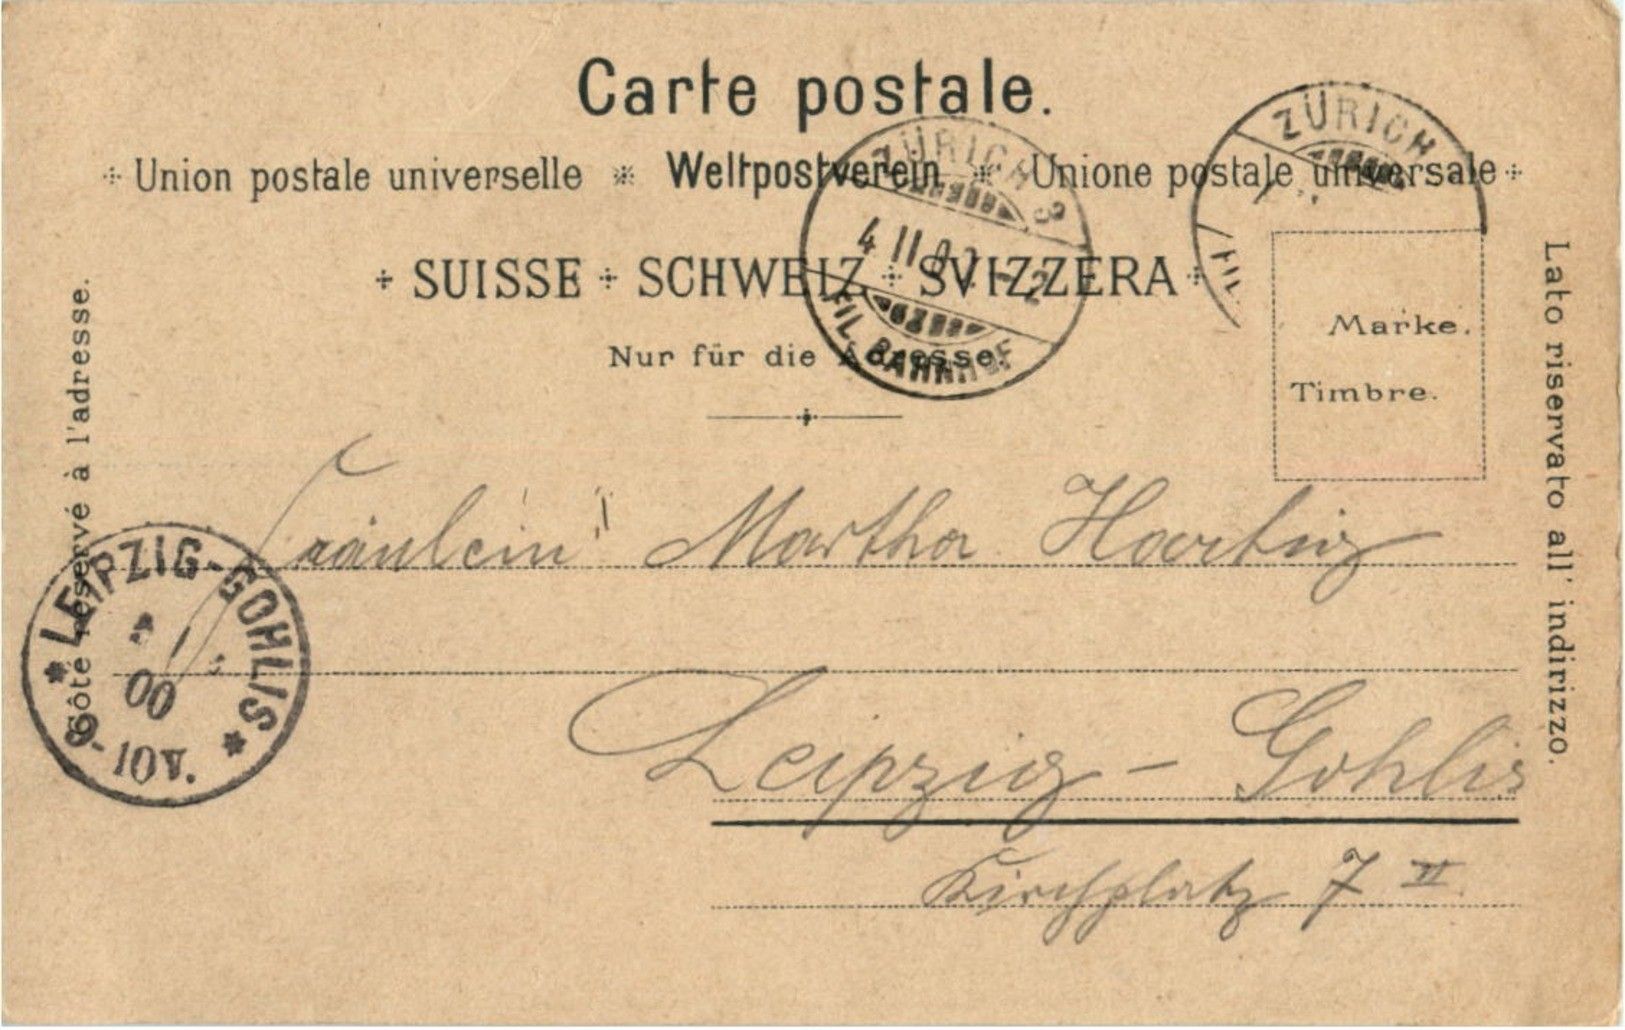 Carte postale.
Union postale universelle Weltpostverein Unione postale universale
SUISSE SCHWEIZ SVIZZERA
Nur für die Adresse.
Côté réservé à l'adresse.
Lato riservato all' indirizzo.
Marke.
Timbre.
ZÜRICH 3
4 II 00
FIL. BAHNHOF
ZÜRICH
LEIPZIG-GOHLIS
00
9-10V.
Fräulein Martha Hartig
Leipzig - Gohlis
Kirchplatz 7 II